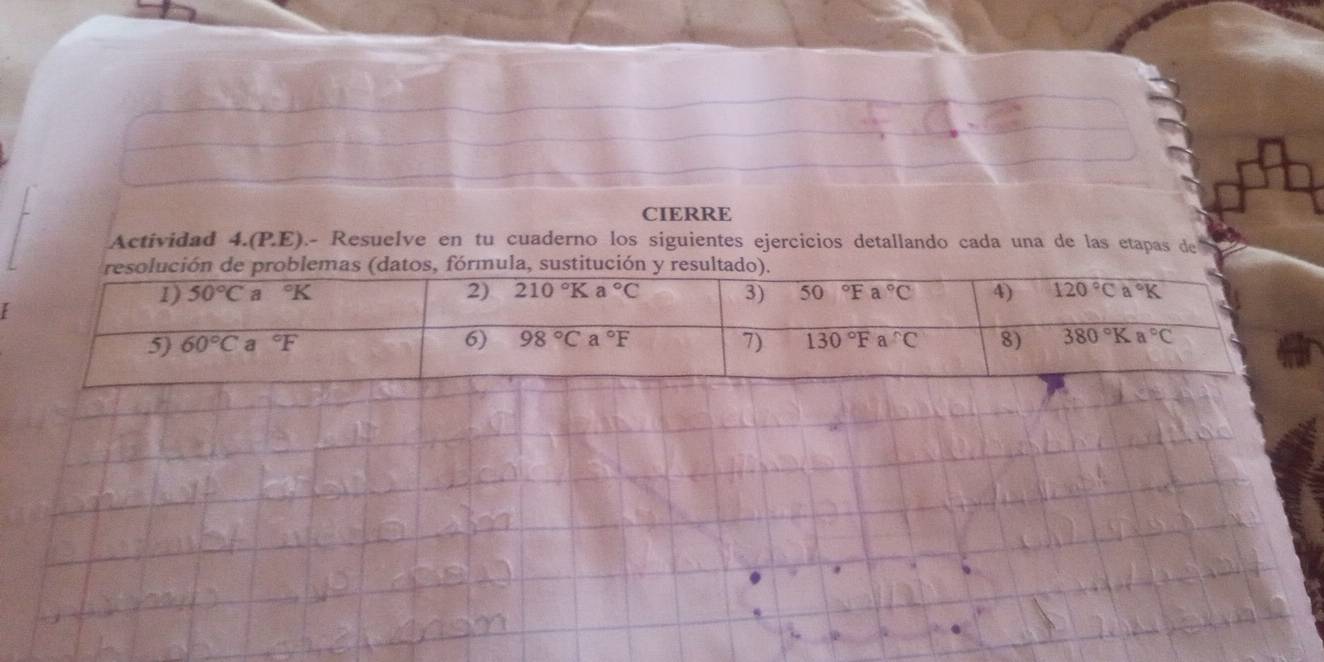 CIERRE
Actividad 4.(P.E).- Resuelve en tu cuaderno los siguientes ejercicios detallando cada una de las etapas de
resolución de problemas (datos, fórmula, sustitución y resultado).
1) 50°C a °K 2) 210 °K a °C 3) 50 °F a °C 4) 120 °C a °K
5) 60°C a °F 6) 98 °C a °F 7) 130 °F a °C 8) 380 °K a °C